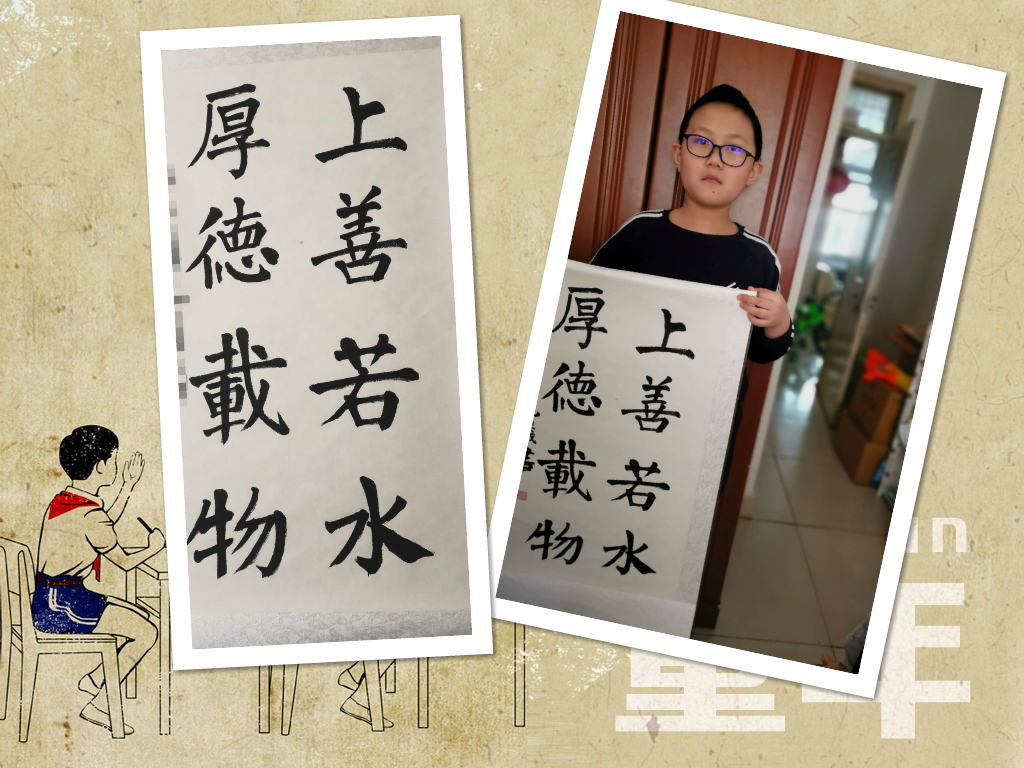 上善若水
厚德載物
上善若水
厚德載物
in